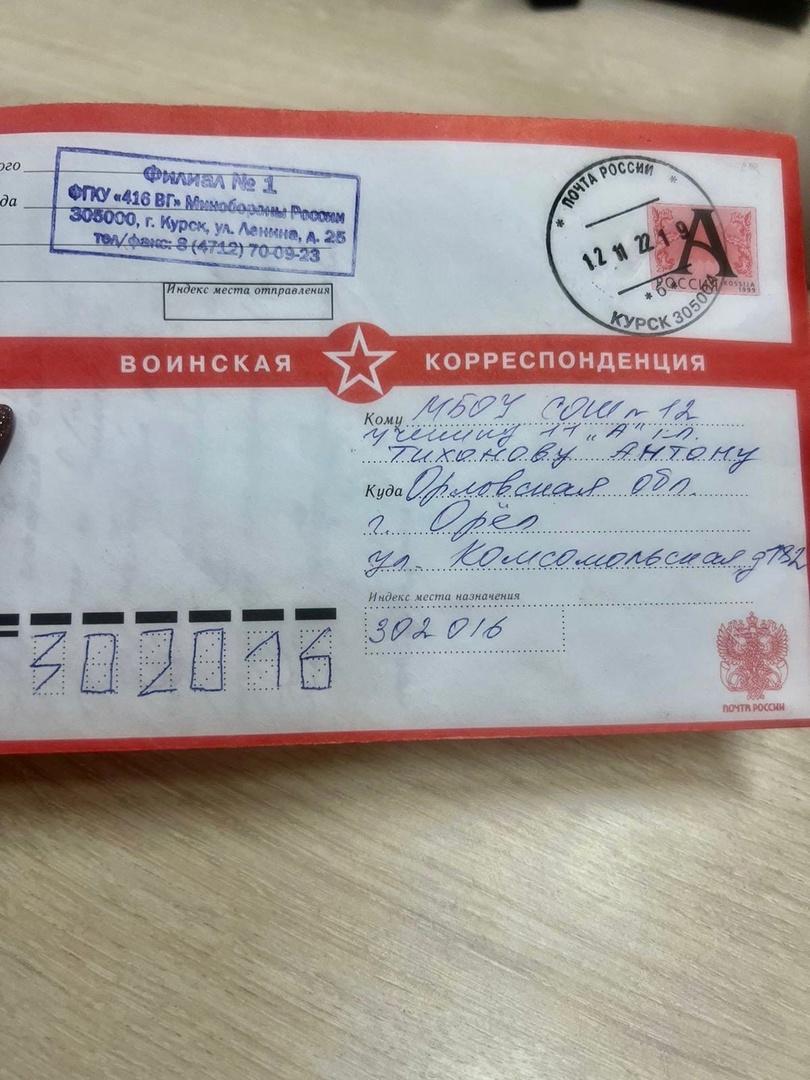 ого
да
Филиал № 1
ФГКУ «416 ВГ» Минобороны России
305000, г. Курск, ул. Ленина, д. 25
тел/факс: 8 (4712) 70-09-23
Индекс места отправления
ПОЧТА РОССИИ
12 11 22 19
*б*
КУРСК 305000
А
РОССИЯ ROSSIJA
1999
ВОИНСКАЯ КОРРЕСПОНДЕНЦИЯ
Кому МБОУ СОШ № 12
ученику 11 "А" кл.
Тиханову Антону
Куда Орловская обл.
г. Орёл
ул. Комсомольская
Индекс места назначения
302016
302016
ПОЧТА РОССИИ